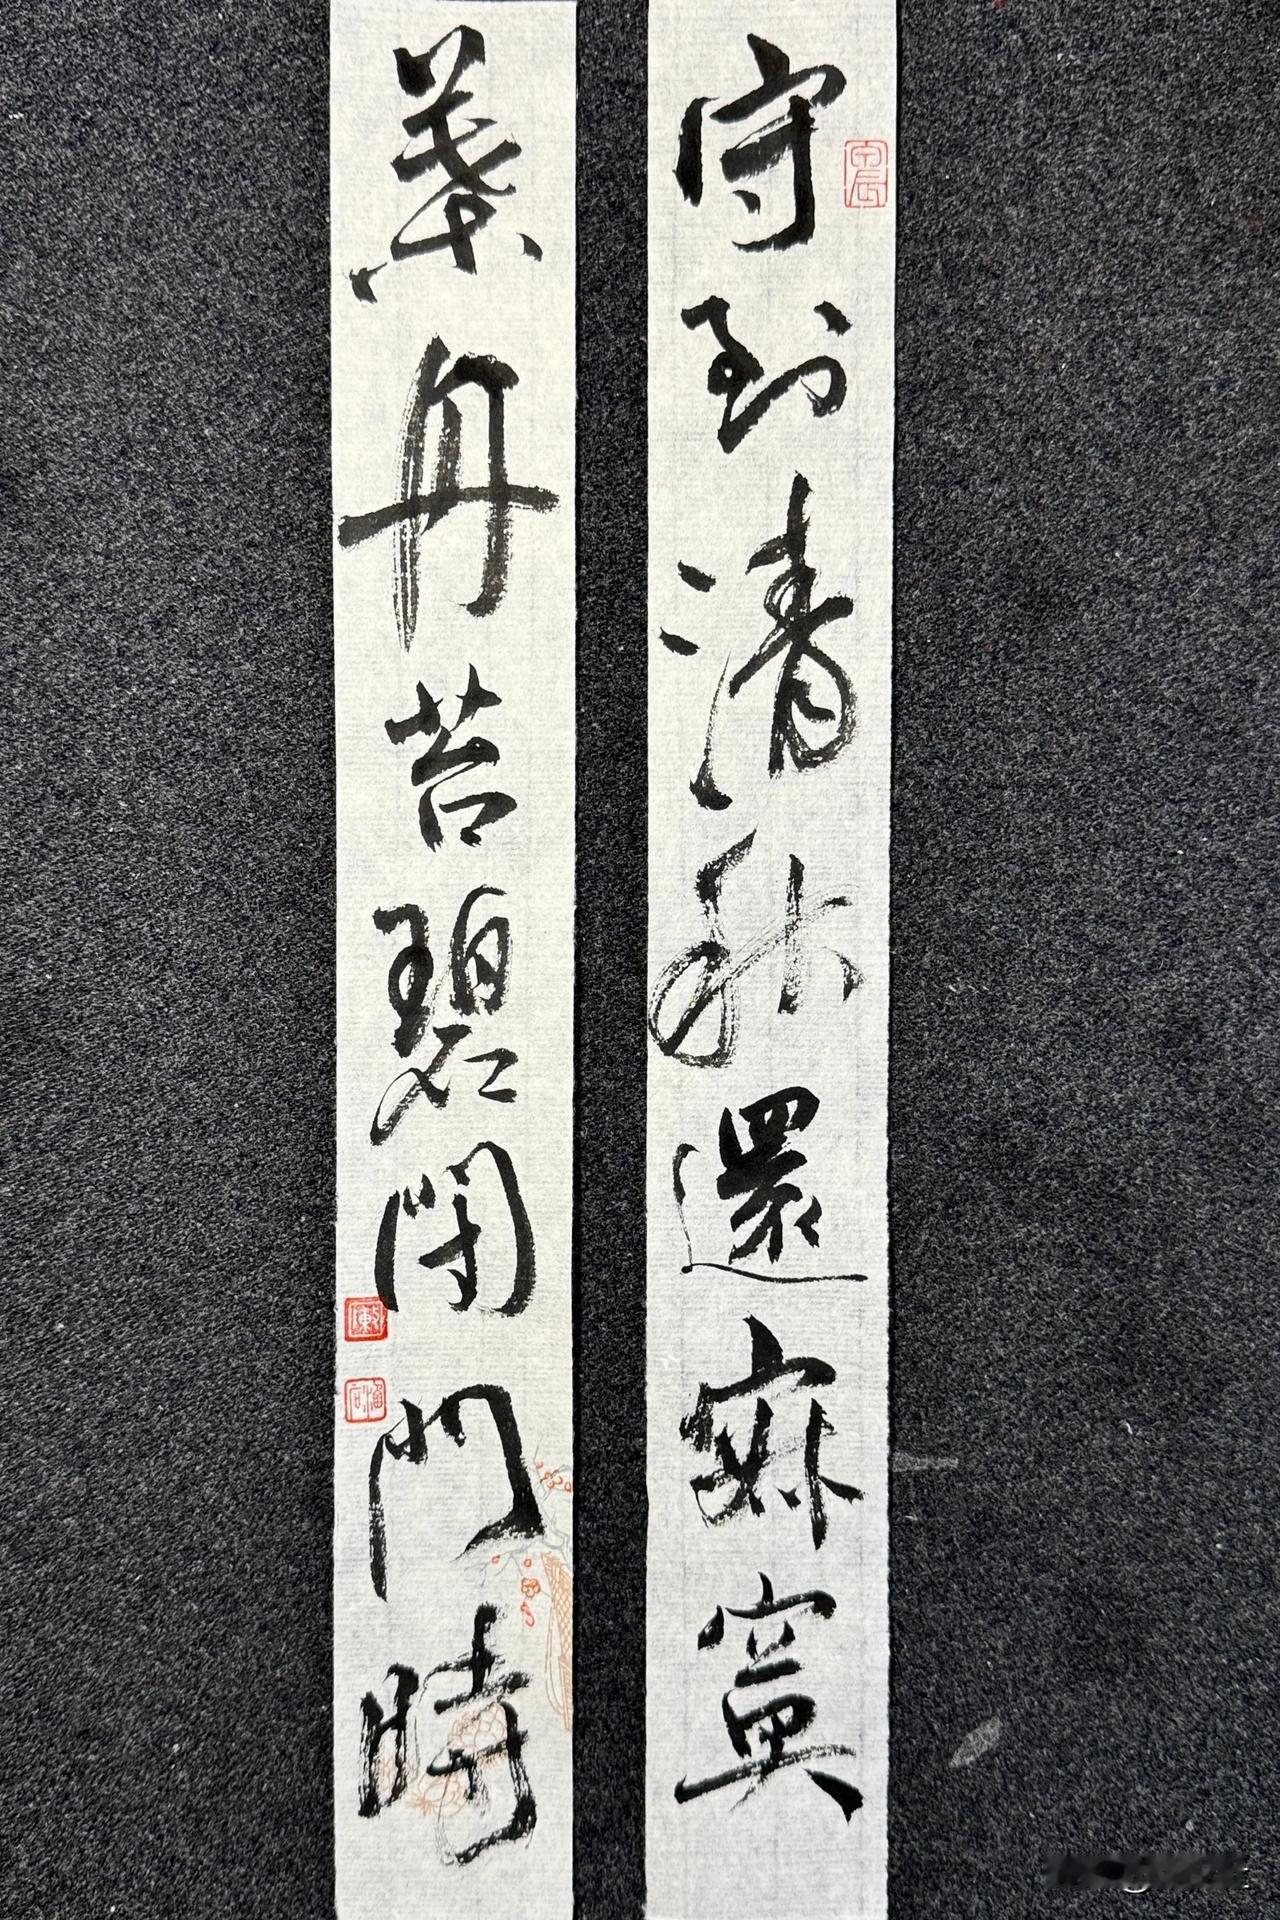 守到清秋還寂寞
葉丹苔碧閉門時